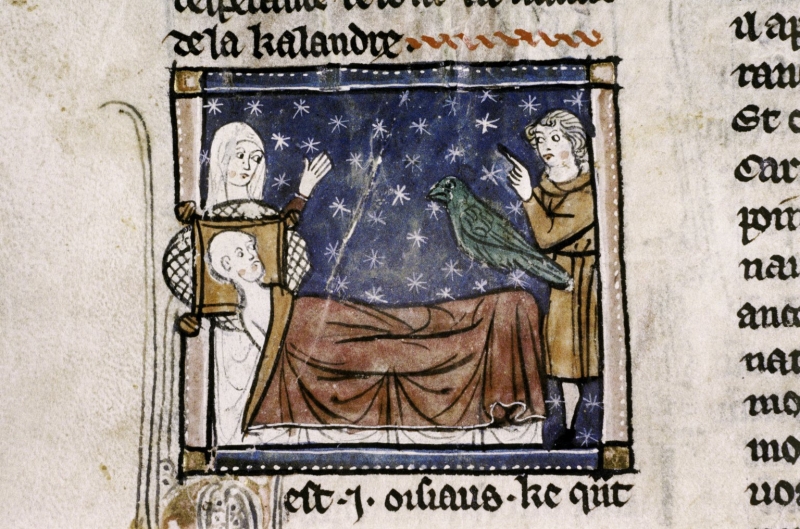 de la kalandre.
est .i. oisiaus . ke qnt
il ap
rau
Et e
Car
poin
nau
anco
nat
mo
mo
uos